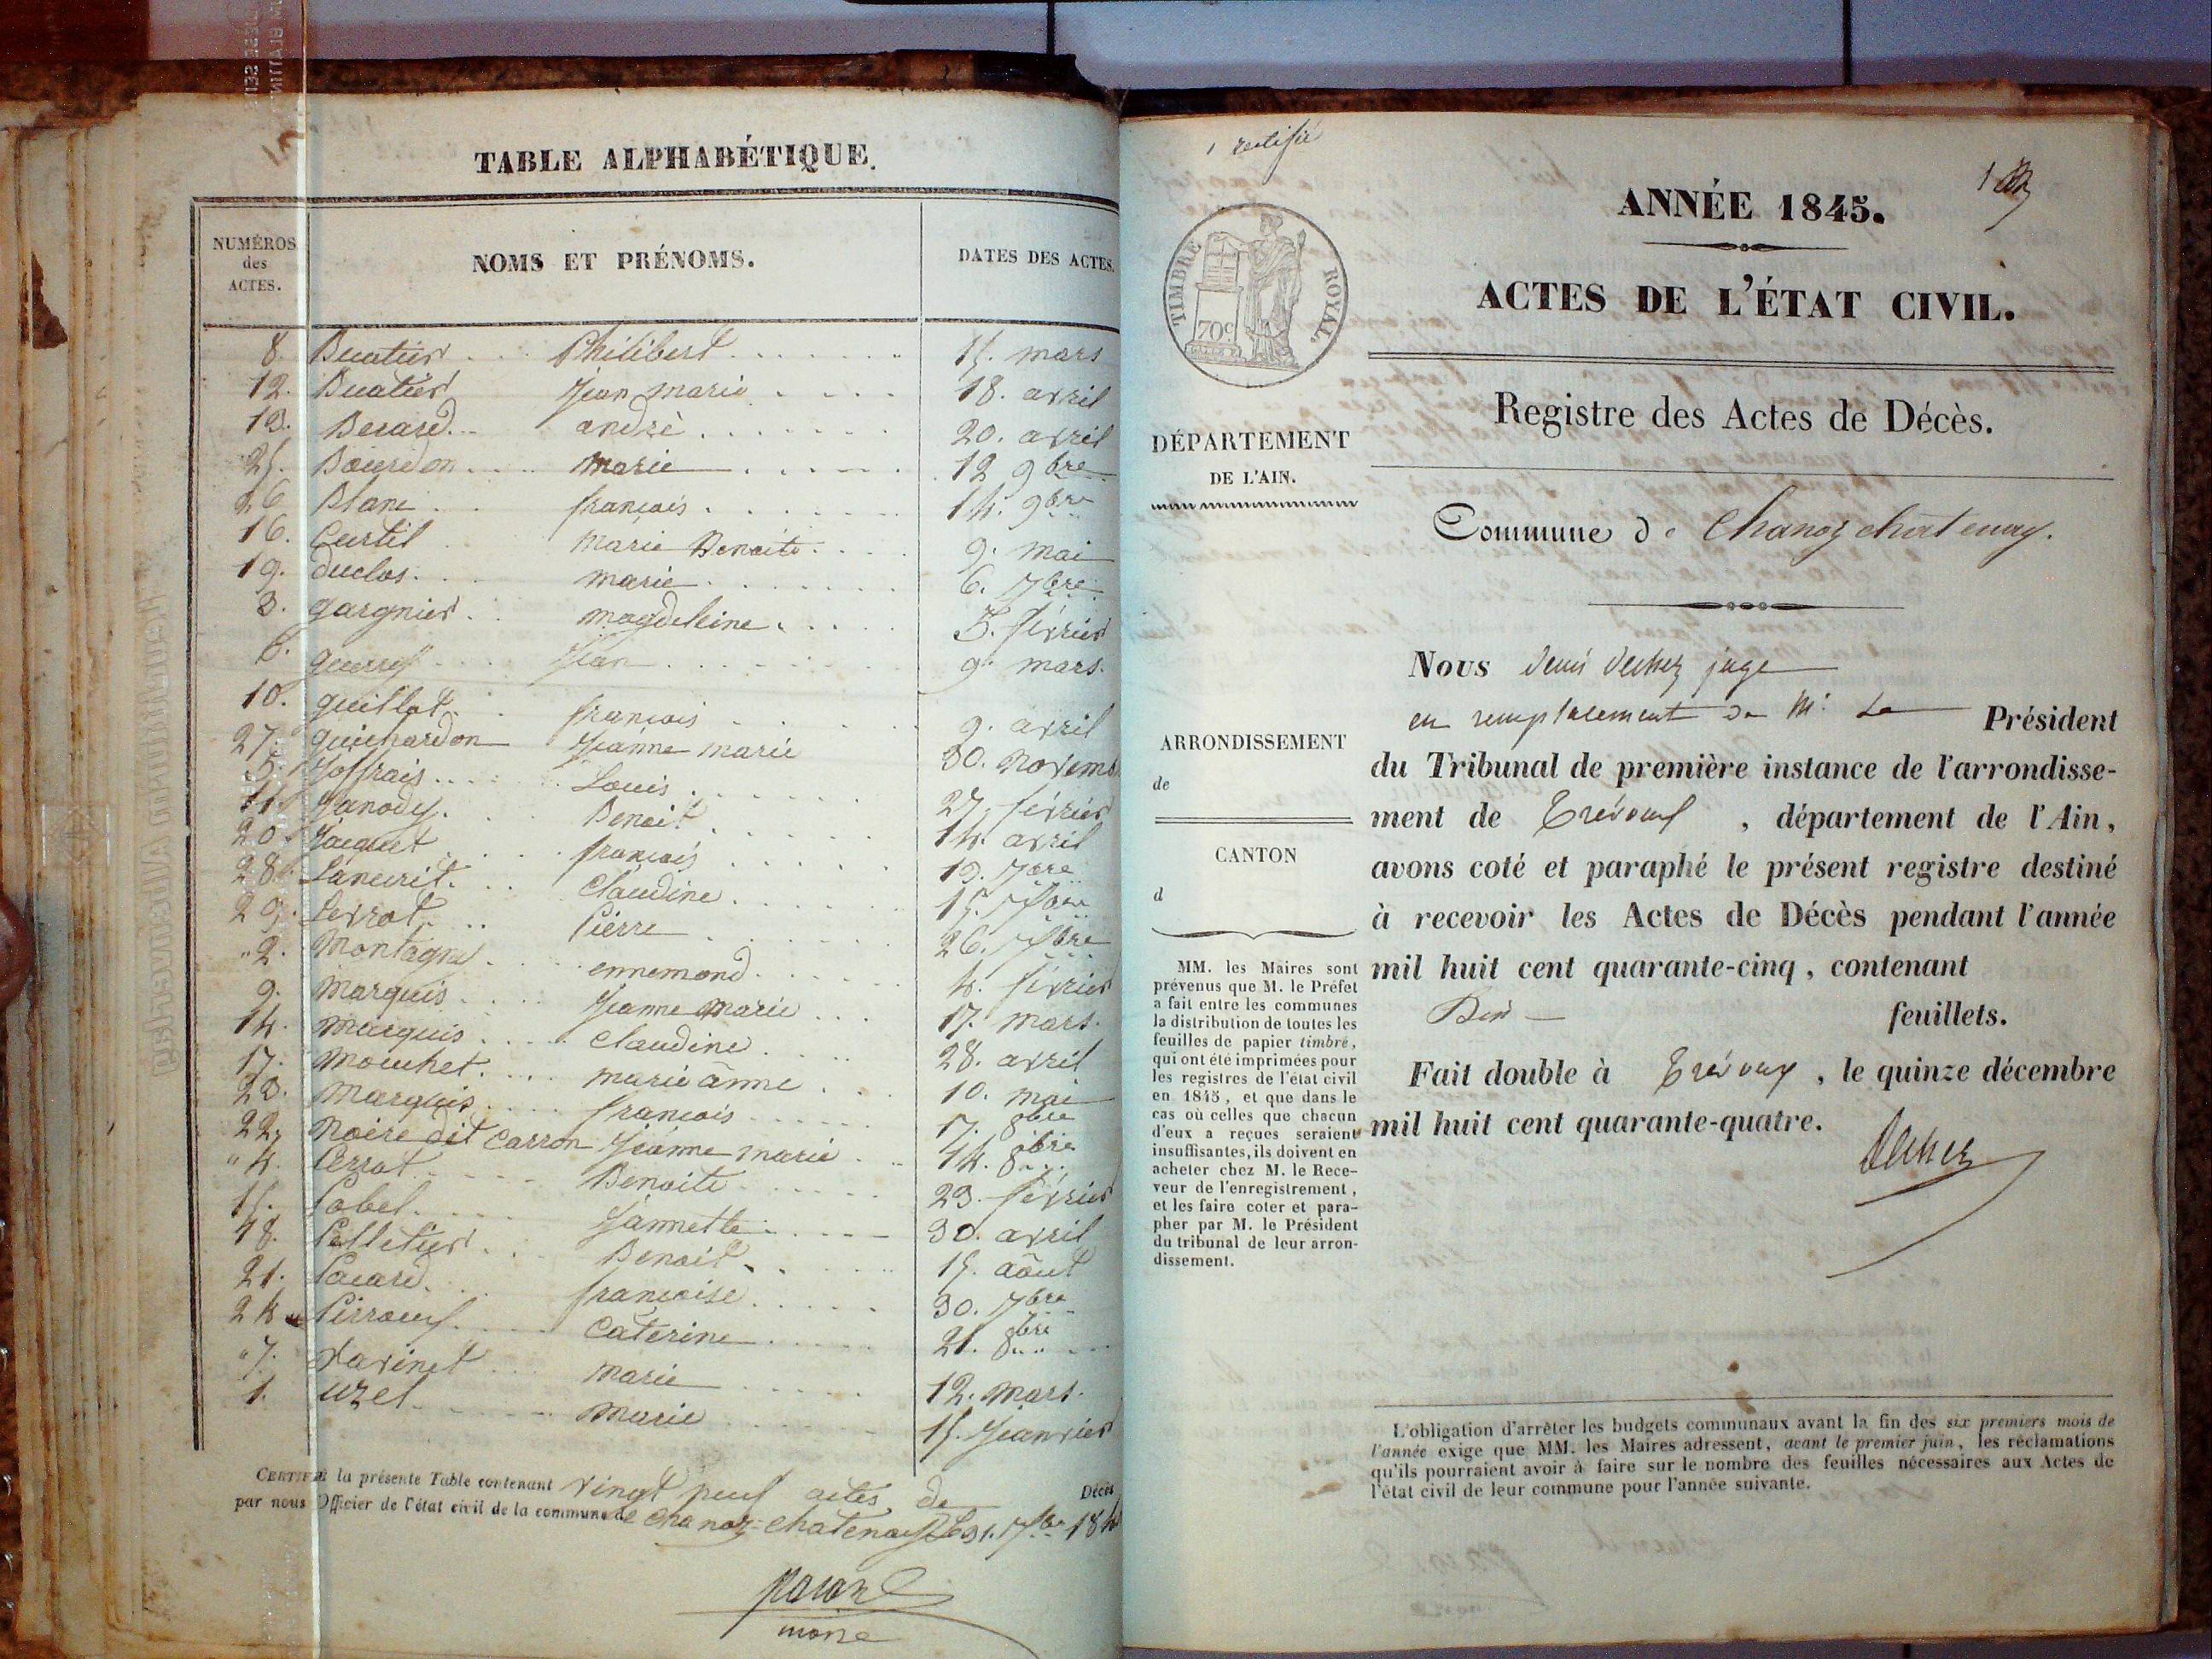 TABLE ALPHABÉTIQUE.
NUMÉROS
des
ACTES.
NOMS ET PRÉNOMS.
DATES DES ACTES.
8. Buatier Philibert 15. mars
12. Buatier Jean marie 18. avril
13. Berard andré 20. avril
25. Bourdon marie 12 9bre
26 Blanc francois 14. 9bre
16. Curtil marie Benoite 9. mai
19. duclos marie 6. 7bre
3. gargnier magdeleine 5. février
6. guerry Jean 9. mars.
10. guillot francois 9. avril
27. guichardon Jeanne marie 30. Novemb
5. Joffrais Louis 27. février
11. Janody Benoit 14. avril
20. Jacquet francois 13. 7bre
28. Lancrit. Claudine 15.
29. Perrot Pierre 26.
2. Montagny ennemond 4. février
9. Marquis Jeanne Marie 17. mars.
14. Marquis Claudine 28. avril
17. Mouchet. marie anne 10. mai
23. Marquis francois 17. 8bre
22. Noire dit Carron Jeanne marie 14. 8bre
4. Perrot Benoite 23. février
15. Pobel Jannette 30. avril
18. Pelletier Benoit 15. août
21. Pacard francoise 30. 7bre
24 Perroux Caterine 21. 8bre
7. Ravinet marie 12. Mars.
1. uzel Marie 15. Jeanvier
CERTIFIÉ la présente Table contenant vingt neuf actes de Décès
par nous Officier de l'état civil de la commune de Chanoz-Chatenay Le 31. Xbre 184
maire
1 rectifié
1
TIMBRE ROYAL.
70c
ANNÉE 1845.
ACTES DE L'ÉTAT CIVIL.
Registre des Actes de Décès.
DÉPARTEMENT
DE L'AIN.
Commune de Chanoz chatenay.
ARRONDISSEMENT
de
CANTON
d
MM. les Maires sont
prévenus que M. le Préfet
a fait entre les communes
la distribution de toutes les
feuilles de papier timbré,
qui ont été imprimées pour
les registres de l'état civil
en 1845, et que dans le
cas où celles que chacun
d'eux a reçues seraient
insuffisantes, ils doivent en
acheter chez M. le Rece-
veur de l'enregistrement,
et les faire coter et para-
pher par M. le Président
du tribunal de leur arron-
dissement.
Nous Denis Dechez juge
en remplacement de M. Le Président
du Tribunal de première instance de l'arrondisse-
ment de Trévoux , département de l'Ain,
avons coté et paraphé le présent registre destiné
à recevoir les Actes de Décès pendant l'année
mil huit cent quarante-cinq, contenant
Dix feuillets.
Fait double à Trévoux , le quinze décembre
mil huit cent quarante-quatre.
Dechez
L'obligation d'arrêter les budgets communaux avant la fin des six premiers mois de
l'année exige que MM. les Maires adressent, avant le premier juin, les réclamations
qu'ils pourraient avoir à faire sur le nombre des feuilles nécessaires aux Actes de
l'état civil de leur commune pour l'année suivante.